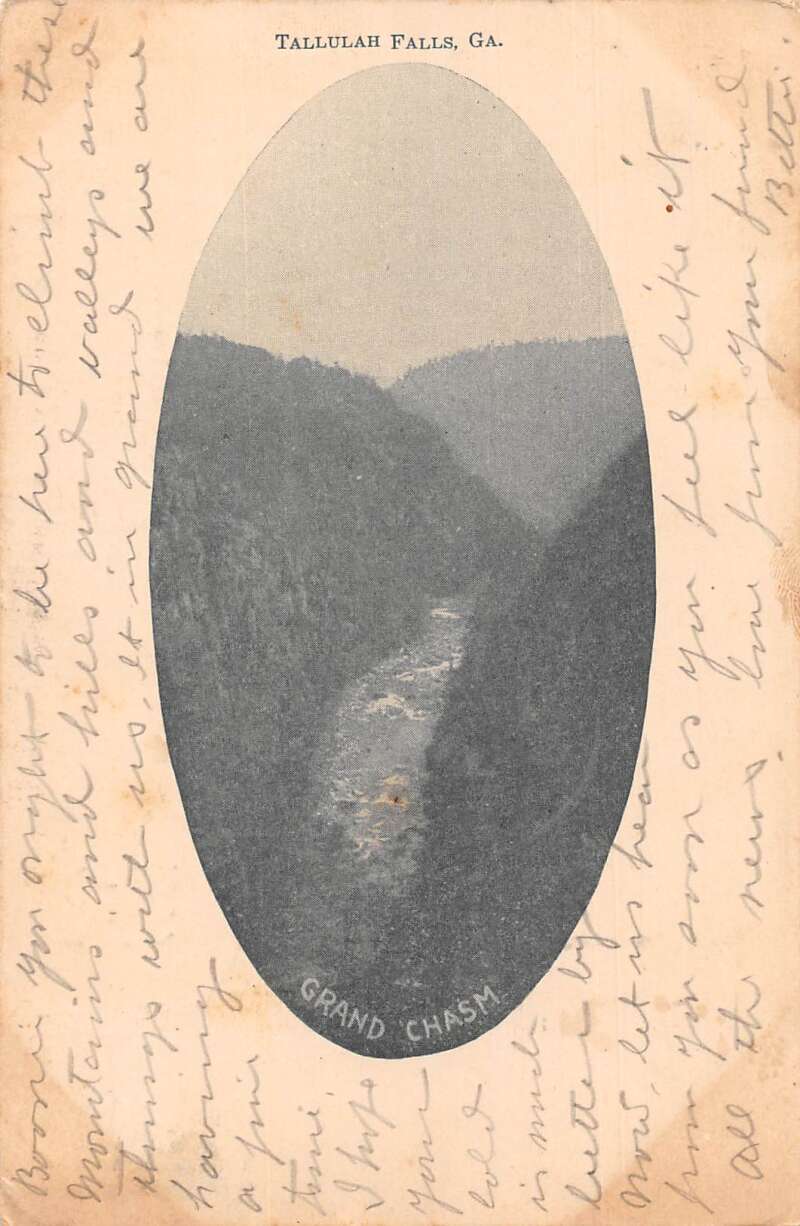 TALLULAH FALLS, GA.
GRAND CHASM
you ought to be here to climb these
Mountains and hills and valleys and
things with us. It is grand we are
having
a fine
time.
I hope
your
cold
is much
better by
now, let us hear
from you soon as you feel like it
all the news. love from your friend